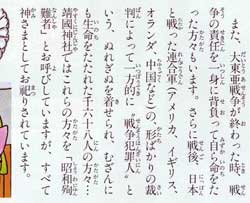 また、大東亜戦争が終わった時、戦
争の責任を一身に背負って自ら命をた
った方々もいます。さらに戦後、日本
と戦った連合軍（アメリカ、イギリス、
オランダ、中国など）の、形ばかりの裁
判によって一方的に〝戦争犯罪人〟と
いう、ぬれぎぬを着せられ、むざんに
も生命をたたれた千六十八人の方々、
靖國神社ではこれらの方々を「昭和殉
難者」とお呼びしていますが、すべて
神さまとしてお祀りされています。